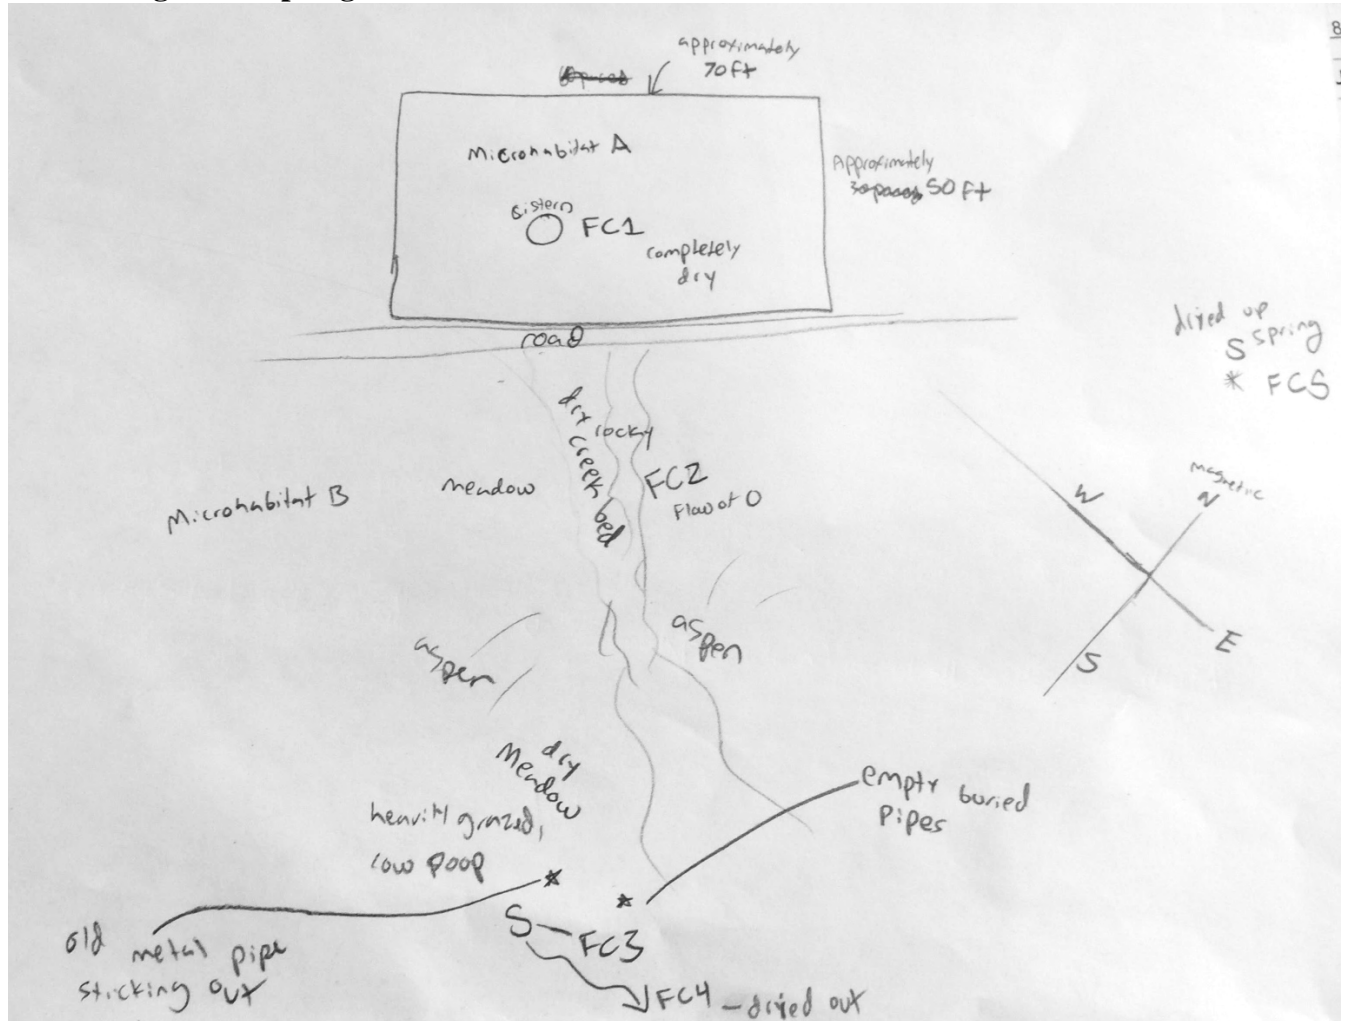 approximately
70 ft
Microhabitat A
Approximately
50 Ft
Sistern
FC1
completely
dry
road
dried up
S spring
* FCS
dry
creek
bed
rocky
FC2
Flow of 0
meadow
Microhabitat B
magnetic
N
W
E
S
aspen
aspen
dry
Meadow
heavily grazed,
low poop
empty buried
pipes
*
*
S – FC3
old metal pipe
sticking out
FC4 – dried out